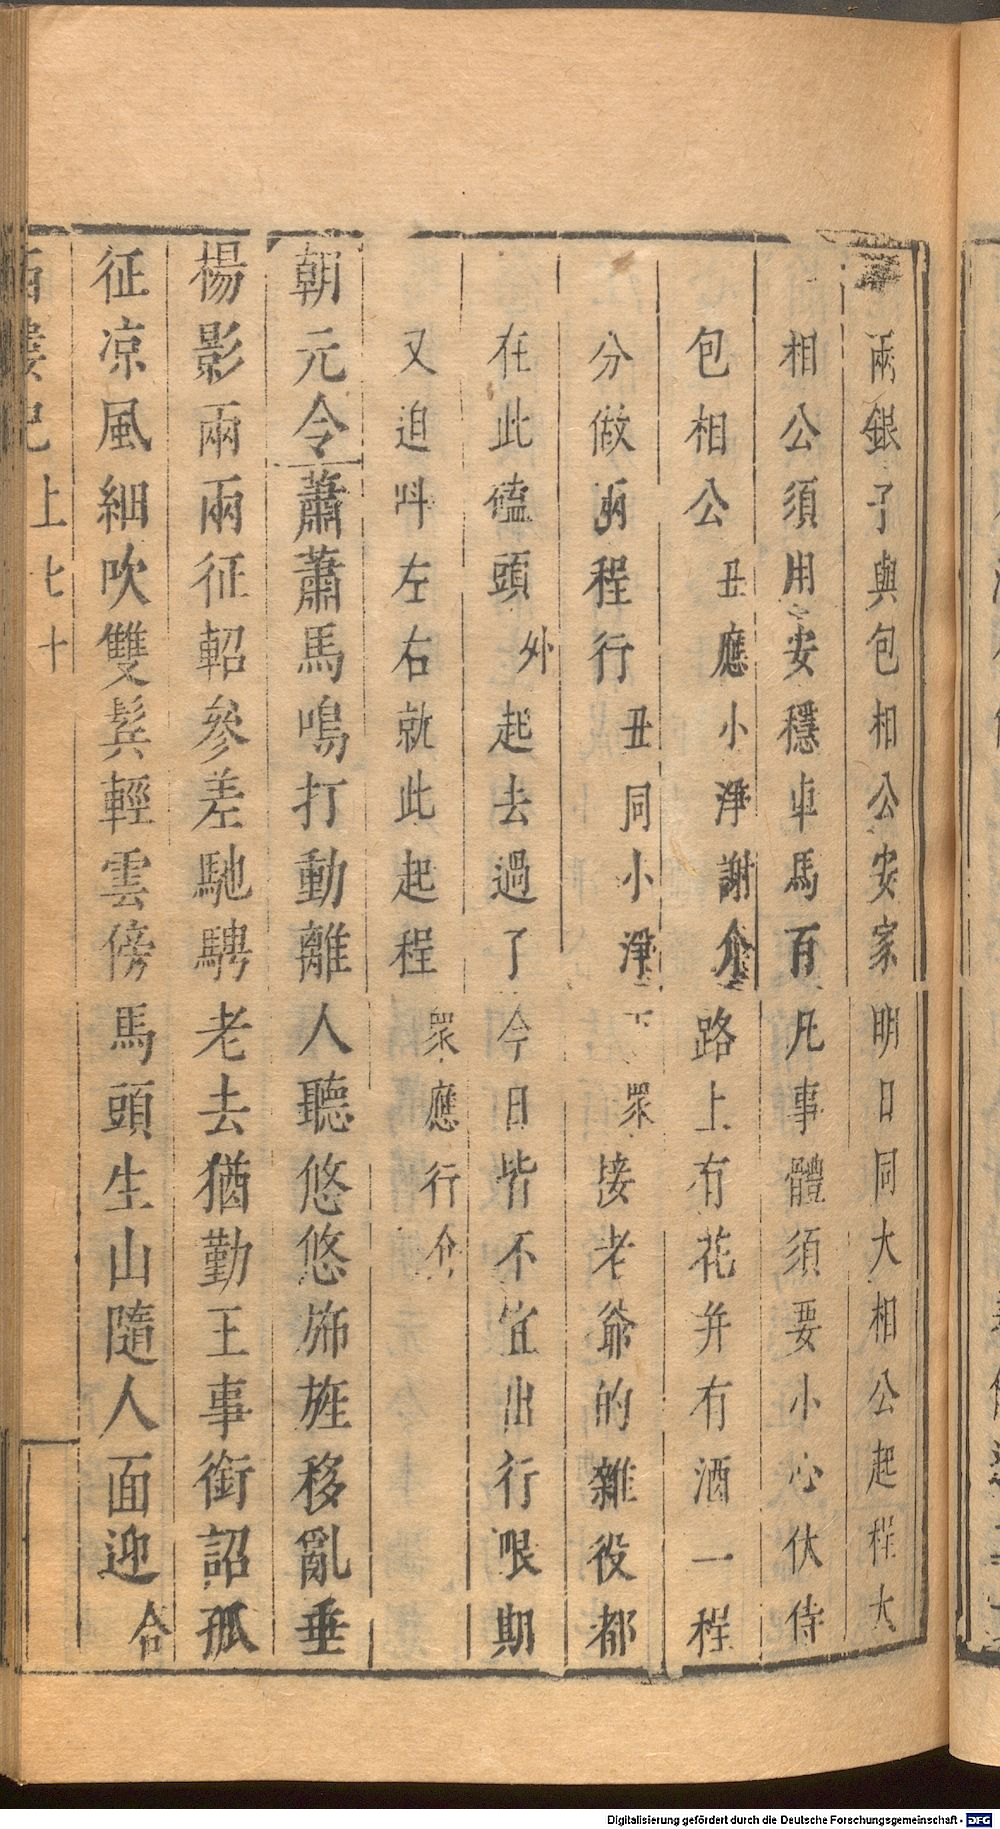 兩銀子與包相公安家明日同大相公起程大
相公須用安穩車馬百凡事體須要小心伏侍
包相公丑應小淨謝介路上有花并有酒一程
分做兩程行丑同小淨下眾接老爺的雜役都
在此磕頭外起去過了今日皆不宜出行限期
又迫叫左右就此起程眾應行介
朝元令蕭蕭馬鳴打動離人聽悠悠旆旌移亂垂
楊影兩兩征軺參差馳騁老去猶勤王事銜詔孤
征凉風細吹雙鬂輕雲傍馬頭生山隨人面迎合
西樓記上七十
Digitalisierung gefördert durch die Deutsche Forschungsgemeinschaft - DFG